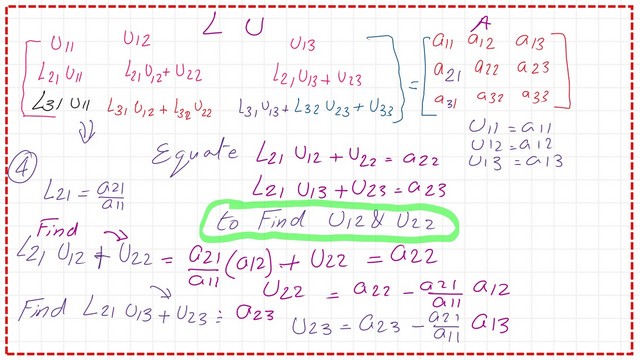 L U A
U11 U12 U13 a11 a12 a13
L21 U11 L21 U12+U22 L21 U13+U23 = a21 a22 a23
L31 U11 L31 U12+L32 U22 L31 U13+L32 U23+U33 a31 a32 a33
U11=a11
U12=a12
U13=a13
4
Equate L21 U12+U22=a22
L21=a21/a11
L21 U13+U23=a23
to Find U12 & U22
Find
L21 U12+U22=a21/a11(a12)+U22=a22
U22=a22-a21/a11 a12
Find L21 U13+U23=a23
U23=a23-a21/a11 a13